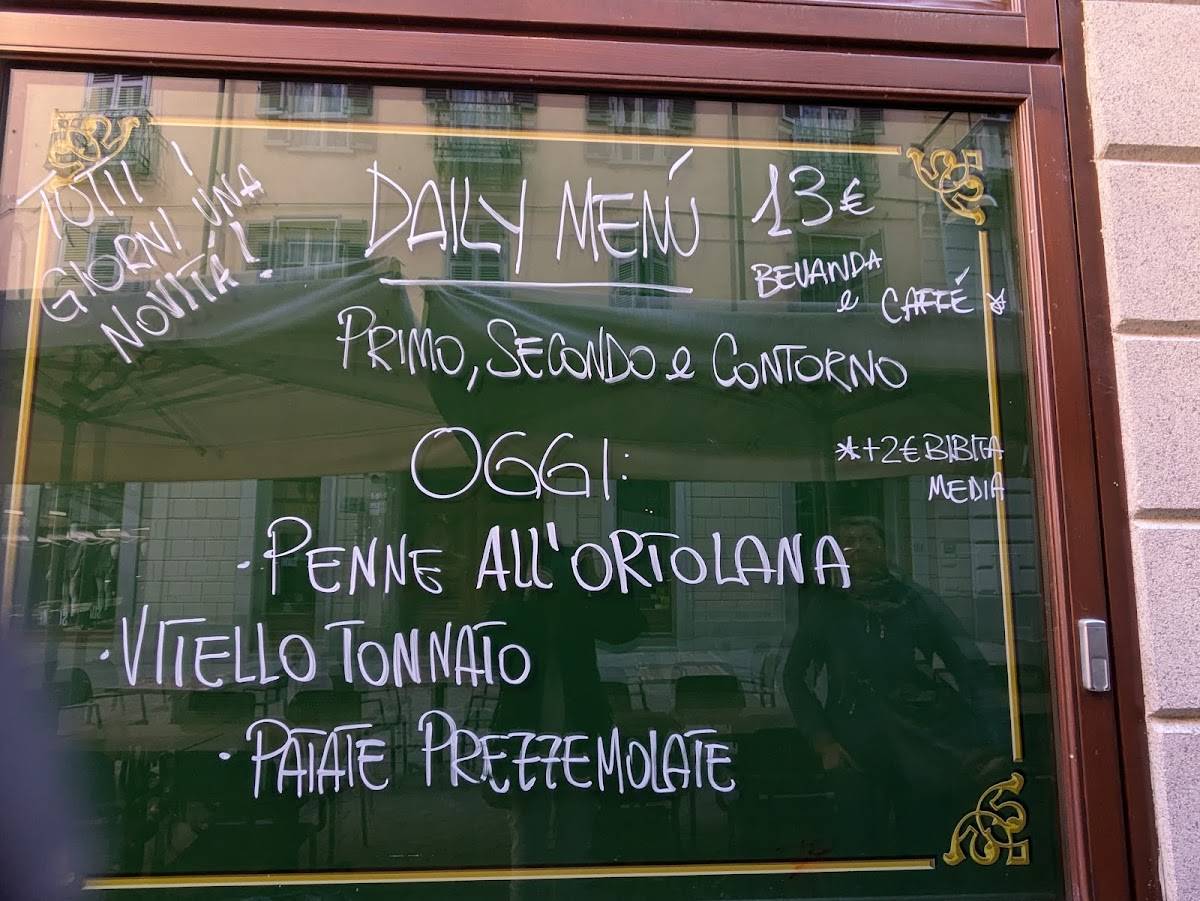 TUTTI I
GIORNI UNA
NOVITÁ!
DAILY MENÚ
13€
BEVANDA
e CAFFÉ *
PRIMO, SECONDO e CONTORNO
OGGI:
*+2€ BIBITA
MEDIA
· PENNE ALL'ORTOLANA
· VITELLO TONNATO
· PATATE PREZZEMOLATE